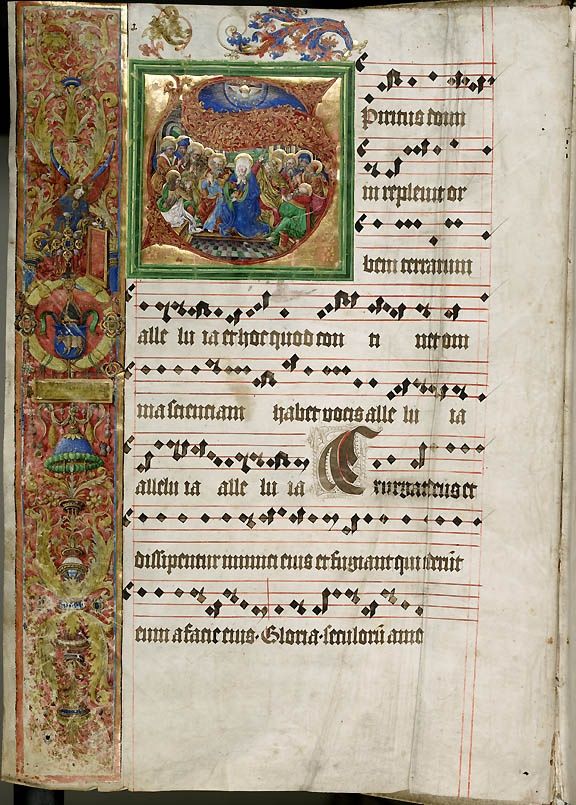 Spiritus domi
ni repleuit or
bem terrarum
alle lu ia et hoc quod con ti net om
nia scienciam habet vocis alle lu ia
allelu ia alle lu ia Exurgat deus et
dissipentur inimici eius et fugiant qui oderūt
eum a facie eius. Gloria. seculorū ame